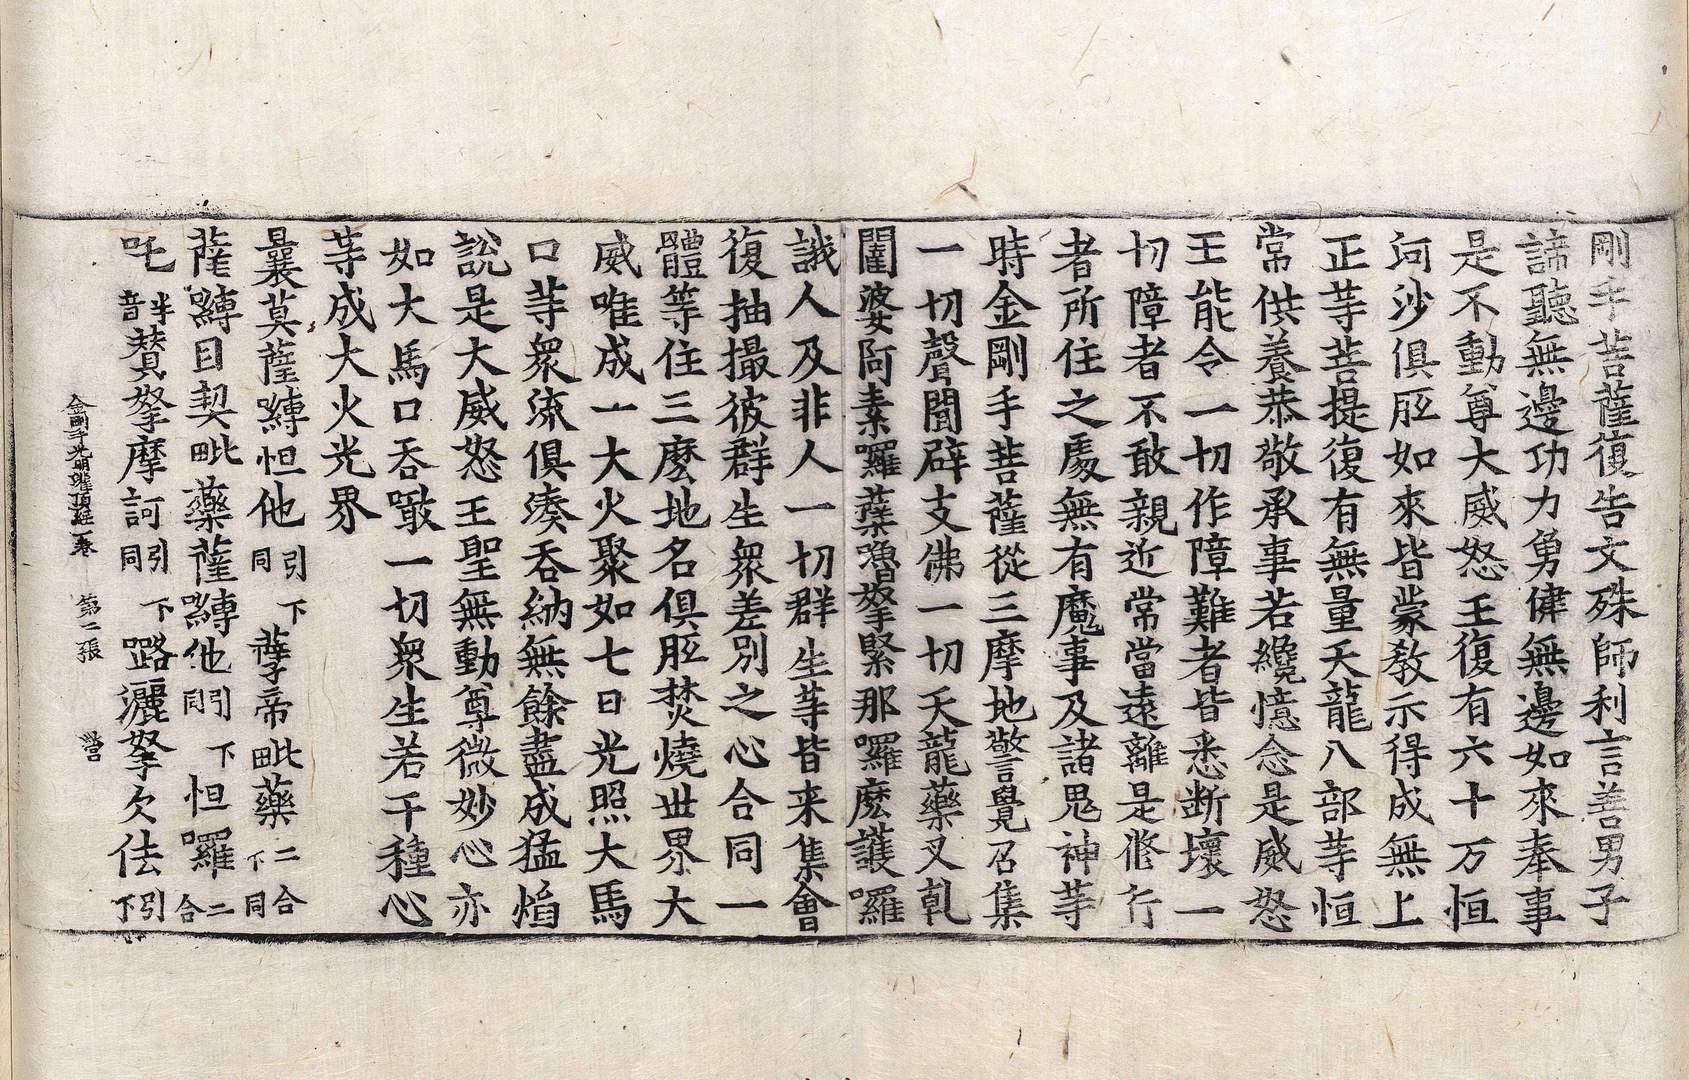 剛手菩薩復告文殊師利言善男子
諦聽無邊功力勇健無邊如來奉事
是不動尊大威怒王復有六十万恒
河沙俱胝如來皆蒙教示得成無上
正等菩提復有無量天龍八部等恒
常供養恭敬承事若纔憶念是威怒
王能令一切作障難者皆悉断壞一
切障者不敢親近常當遠離是修行
者所住之處無有魔事及諸鬼神等
時金剛手菩薩從三摩地警覺召集
一切聲聞辟支佛一切天龍藥叉乹
闥婆阿素囉蘖嚕拏緊那囉麼護囉
誐人及非人一切群生等皆来集會
復抽撮彼群生衆差別之心合同一
體等住三麽地名俱胝焚燒世界大
威唯成一大火聚如七日光照大馬
口等衆流俱湊吞納無餘盡成猛焰
說是大威怒王聖無動尊微妙心亦
如大馬口吞噉一切衆生若干種心
等成大火光界
曩莫薩嚩怛他引下同孽帝毗藥二合下同
薩嚩目契毗藥薩嚩他引下同怛囉二合
吒半音賛拏摩訶引下同路灑拏欠佉引下
金剛手光明灌頂経一卷 第二張 營